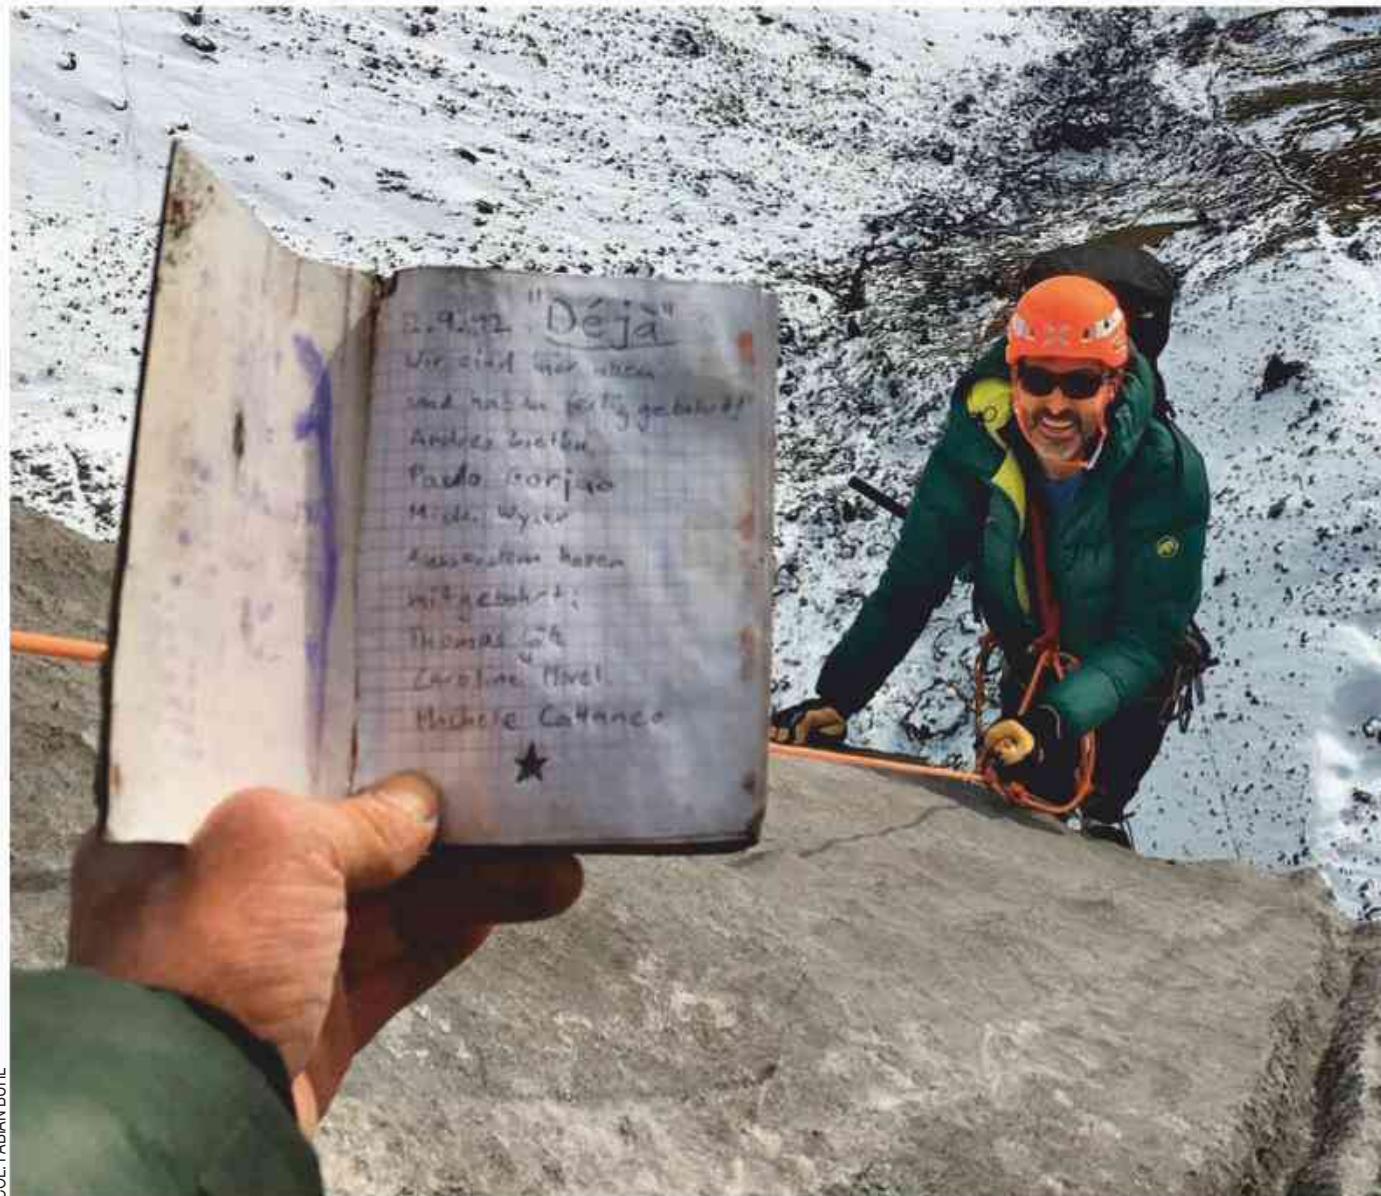 2.9.92 "Déjà"
Wir sind hier oben
und haben fertig gebohrt!
Andres
Paulo Gorjão
Michi Wyser
Ausserdem haben
mitgebohrt:
Thomas
Caroline Morel
Michele Cattaneo
COL. FABIAN BUHL